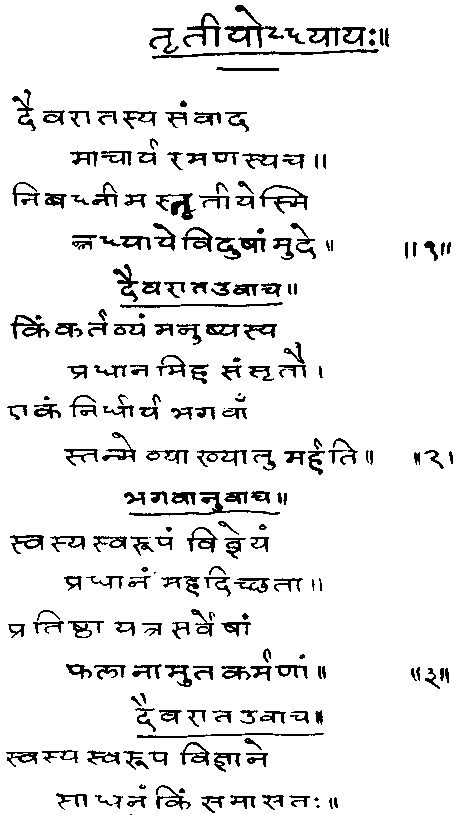 तृतीयोऽध्यायः॥
दैवरातस्य संवाद
माचार्य रमणस्य च॥
निबध्नीमस्तृतीयेस्मि
न्नध्याये विदुषां मुदे॥ ॥१॥
दैवरात उवाच॥
किं कर्तव्यं मनुष्यस्य
प्रधानमिह संसृतौ।
एकं निर्धार्य भगवाँ
स्तन्मे व्याख्यातु मर्हति॥ ॥२।
भगवानुवाच॥
स्वस्य स्वरूपं विज्ञेयं
प्रधानं महदिच्छता॥
प्रतिष्ठा यत्र सर्वेषां
फलानामुत कर्मणां॥ ॥३॥
दैवरात उवाच॥
स्वस्य स्वरूप विज्ञाने
साधनं किं समासतः॥